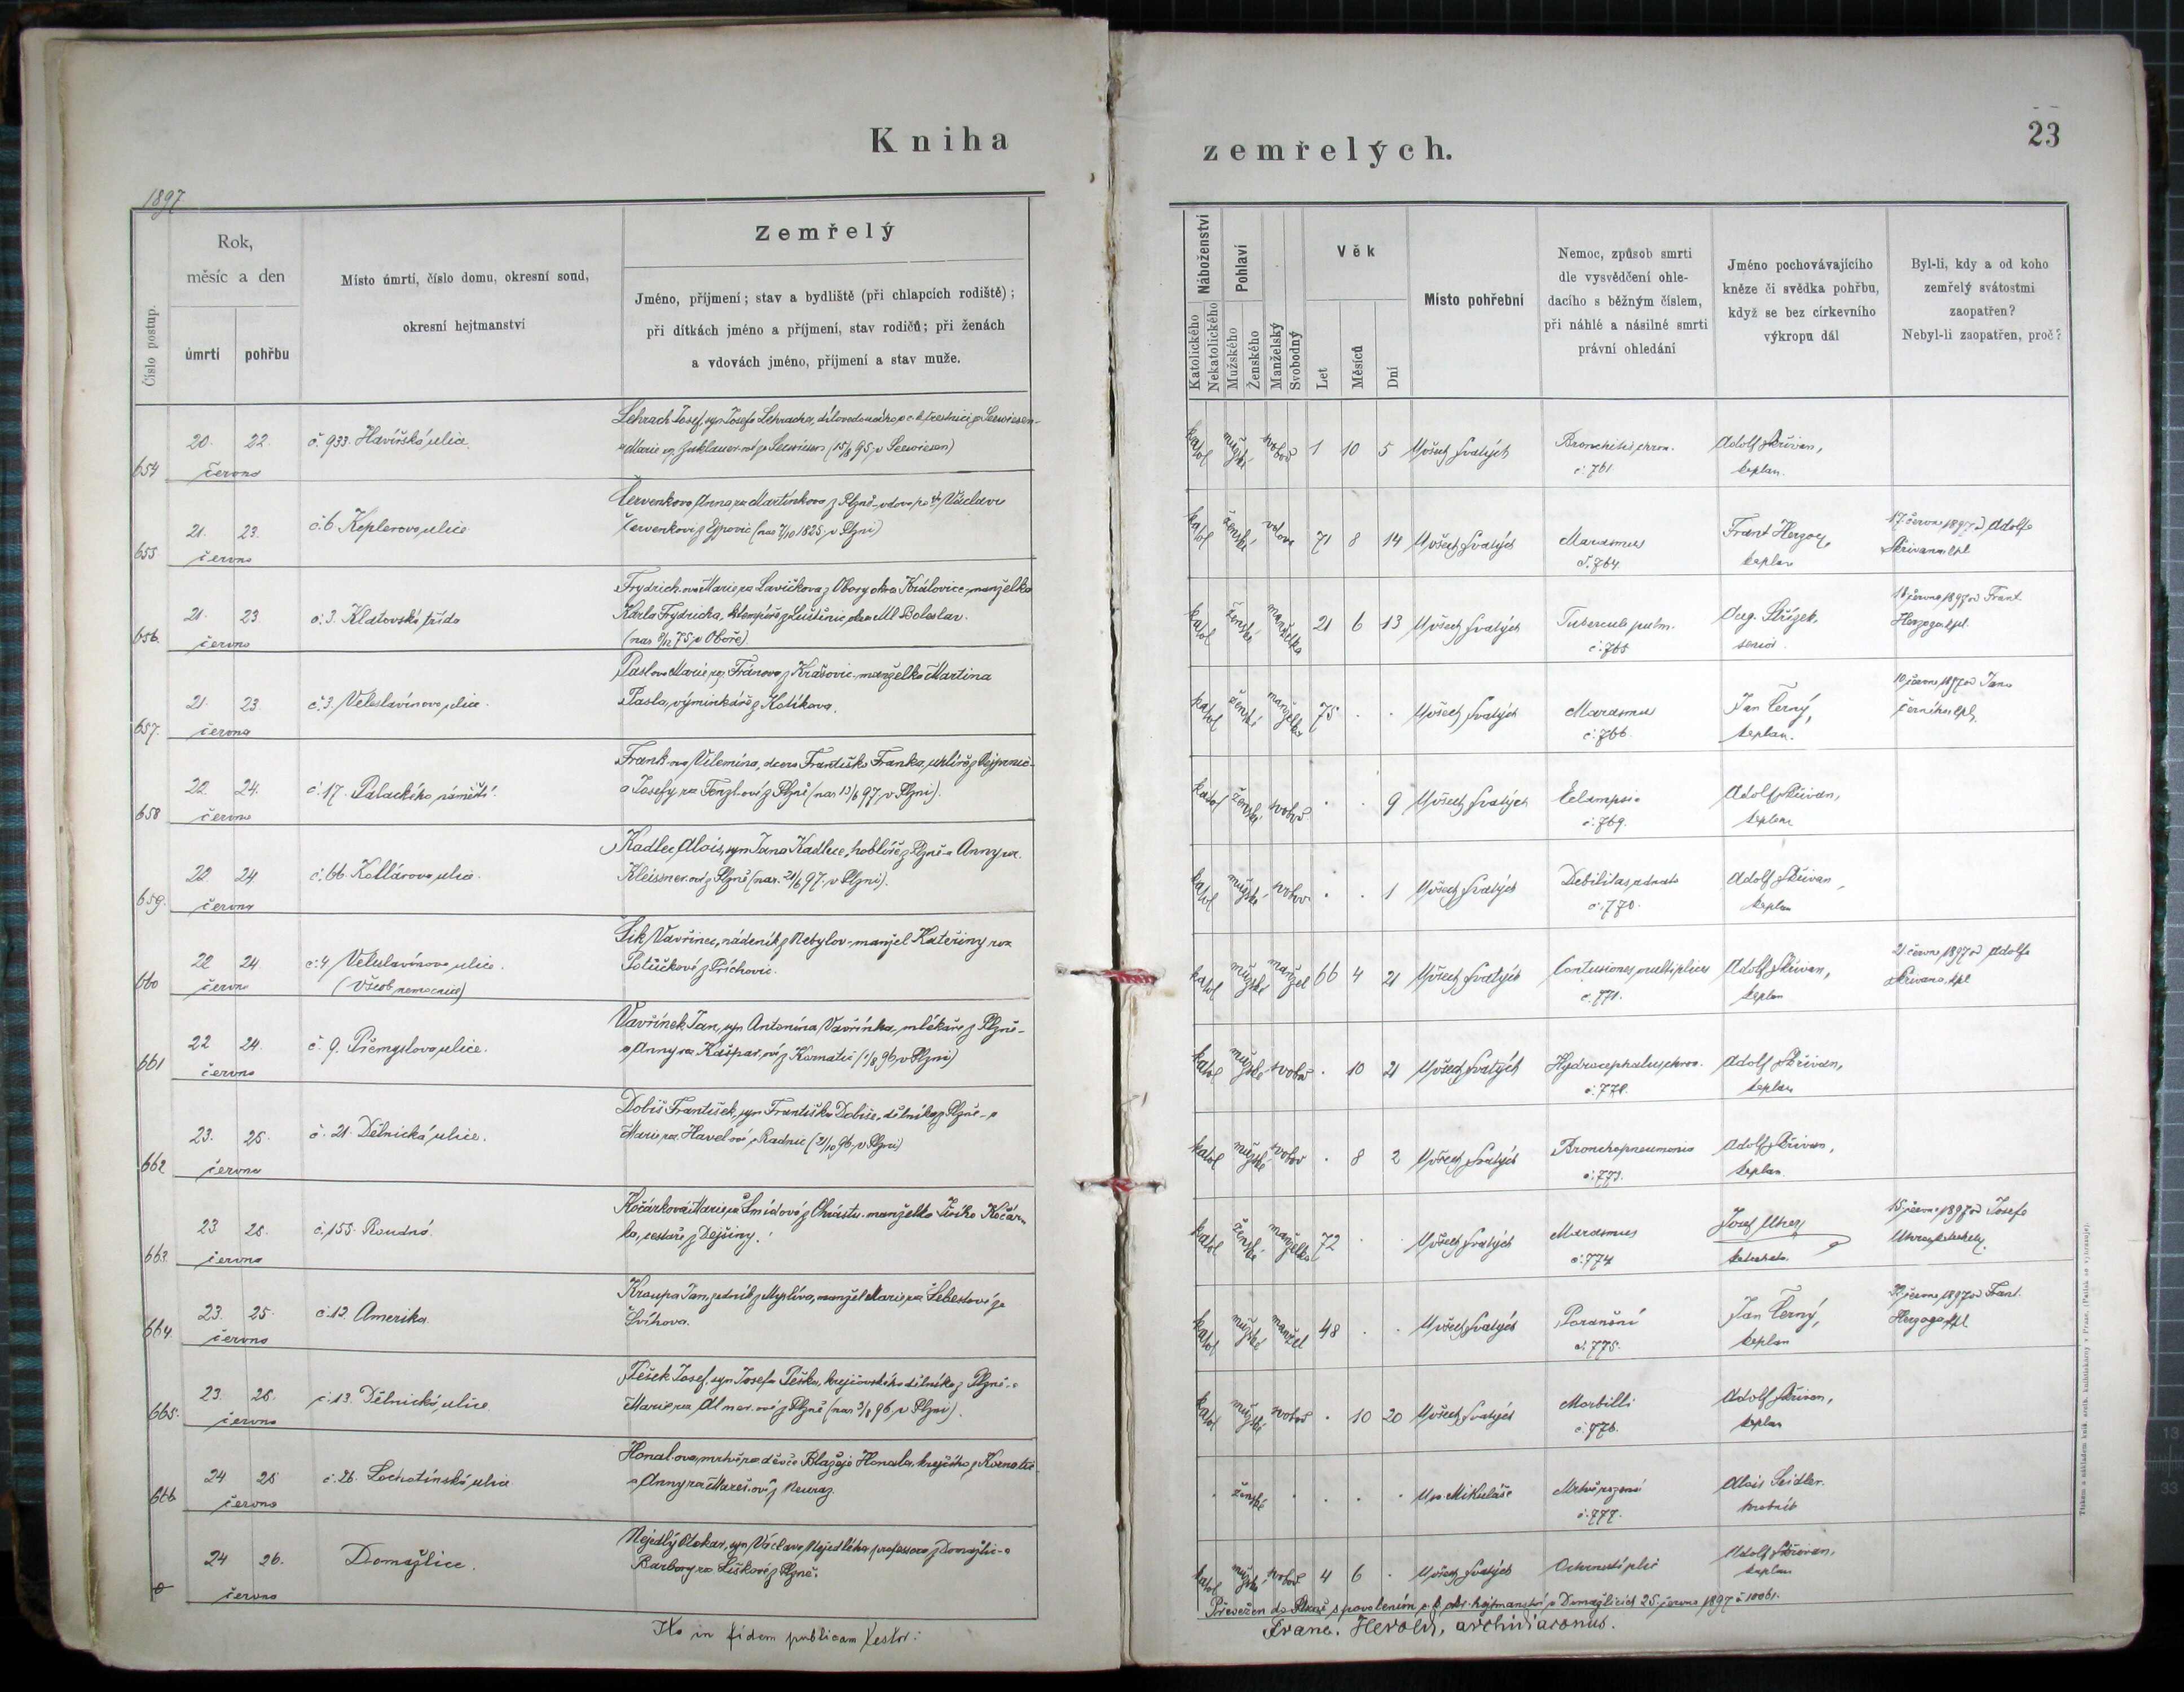 Kniha
zemřelých.
23
1897
Číslo postup.
Rok,
měsíc a den
úmrtí
pohřbu
Místo úmrtí, číslo domu, okresní soud,
okresní hejtmanství
Zemřelý
Jméno, příjmení; stav a bydliště (při chlapcích rodiště);
při dítkách jméno a příjmení, stav rodičů; při ženách
a vdovách jméno, příjmení a stav muže.
Náboženství
Katolického
Nekatolického
Pohlaví
Mužského
Ženského
Manželský
Svobodný
Věk
Let
Měsíců
Dní
Místo pohřební
Nemoc, způsob smrti
dle vysvědčení ohle-
dacího s běžným číslem,
při náhlé a násilné smrti
právní ohledání
Jméno pochovávajícího
kněze či svědka pohřbu,
když se bez církevního
výkropu dál
Byl-li, kdy a od koho
zemřelý svátostmi
zaopatřen?
Nebyl-li zaopatřen, proč?
654 20. 22. června č. 933. Havířská ulice.
Lehrach Josef, syn Josefa Lehracha,
katol mužské svobod 1 10 5 U všech Svatých Bronchitis chron. č. 761 Adolf Skřivan, kaplan.
655 21. 23. června č. 6 Keplerova ulice
Červenkova Anna roz Martínkova z Plzně - vdova po Václavu
Červenkovi z Ejpovic (nar 7/10 1825 v Plzni)
katol ženské vdova 71 8 14 U všech Svatých Marasmus č. 764 Frant Herzog, kaplan
17. června 1897 od Adolfa
Skřivana kpl
656 21. 23 června č. 3. Klatovská třída
Frydrich-ova Marie roz Lavičkova z Obory okres Kralovice - manželka
Karla Frydricha, klempíře z Luštěnic okres Ml Boleslav.
(nar 8/12 75 v Oboře)
katol ženské manželka 21 6 13 U všech Svatých Tubercul pulm. č. 765 Aug. Střízek, senior
18 června 1897 od Frant
Herzoga kpl.
657. 21. 23. června č. 3. Veleslavínova ulice.
Paslova Marie roz. Fránova z Krašovic - manželka Martina
Pasla, výminkáře z Kotíkova.
katol ženské manželka 75 . . U všech Svatých Marasmus č. 766. Jan Černý, kaplan.
19 června 1897 od Jana
Černého kpl.
658 22. 24. června č. 17. Palackého náměstí.
Frank-ova Vilemína, dcera Františka Franka,
a Josefy roz Fenzl-ové z Plzně (nar 13/6 97 v Plzni).
katol ženské svobod . . 9 U všech Svatých Eclampsie č. 769. Adolf Skřivan, kaplan
659. 22. 24 června č. 66. Kollárova ulice.
Kadlec Alois, syn Jana Kadlece, hoblíře z Plzně a Anny roz.
Kleissner-ové z Plzně (nar. 21/6 97. v Plzni).
katol mužské svobod . . 1 U všech Svatých Debilitas adnata č. 770. Adolf Skřivan, kaplan
660 22 24. června č. 4 Veleslavínova ulice.
(Všeob. nemocnice)
Šik Vavřinec, nádeník z Nebylov - manžel Kateřiny roz
Potůčkové z Příchovic.
katol mužské manžel 66 4 21 U všech Svatých Contusiones multiplices č. 771. Adolf Skřivan, kaplan
21 června 1897 od Adolfa
Skřivana, kpl
661 22 24. června č. 9. Přemyslova ulice.
Vavřínek Jan, syn Antonína Vavřínka, mlékaře z Plzně -
a Anny roz Kašpar-ové z Kornatic (1/8 96 v Plzni)
katol mužské svobod . 10 21 U všech Svatých Hydrocephalus chron. č. 772. Adolf Skřivan, kaplan
662 23. 25. června č. 21. Dělnická ulice.
Dobiš František, syn Františka Dobiše, dělníka z Plzně - a
Marie roz. Havel-ové z Radnic (21/10 96 v Plzni)
katol mužské svobod . 8 2 U všech Svatých Bronchopneumonia č. 773. Adolf Skřivan, kaplan
663. 23 25. června č. 155. Roudná.
Kočárková Marie roz Šmídová z Chrástu - manželka Jiřího Kočár-
ka, cestáře z Dejšiny.
katol ženské manželka 72 . . U všech Svatých Marasmus č. 774 Josef katecheta.
15 června 1897 od Josefa
664. 23. 25. června č. 12. Amerika.
Kroupa Jan, z Myslíva, manžel Marie roz Šebestové ze
Švihova.
katol mužské manžel 48 . . U všech Svatých Poranění č. 775. Jan Černý, kaplan
22 června 1897 od Frant.
Herzoga kpl
665. 23. 25. června č. 13. Dělnická ulice.
Pešek Josef, syn Josefa Peška, krejčovského dělníka z Plzně - a
Marie roz Almer-ové z Plzně (nar 3/8 96 v Plzni).
katol mužské svobod . 10 20 U všech Svatých Morbilli č. 776. Adolf Skřivan, kaplan
666 24 25 června č. 26. Lochotínská ulice.
Honal-ova, mrtvě roz děvče Blažeje Honala, krejčího z Kornatic -
a Anny roz Mareš-ové z Neuraz.
. ženské . . . . U sv Mikuláše Mrtvě rozená č. 777. Alois Seidler. hrobník
0 24 26. června Domažlice.
Nejedlý Otokar, syn Václava Nejedlého professora z Domažlic - a
Barbory roz Liškové z Plzně.
katol mužské svobod 4 6 . U všech Svatých Ochrnutí plic Adolf Skřivan, kaplan
Převežen do Plzně s povolením c. k. okr. hejtmanství v Domažlicích 25. června 1897 č 10061.
Ita in fidem publicam testor:
Franc. Herold, archidiaconus.